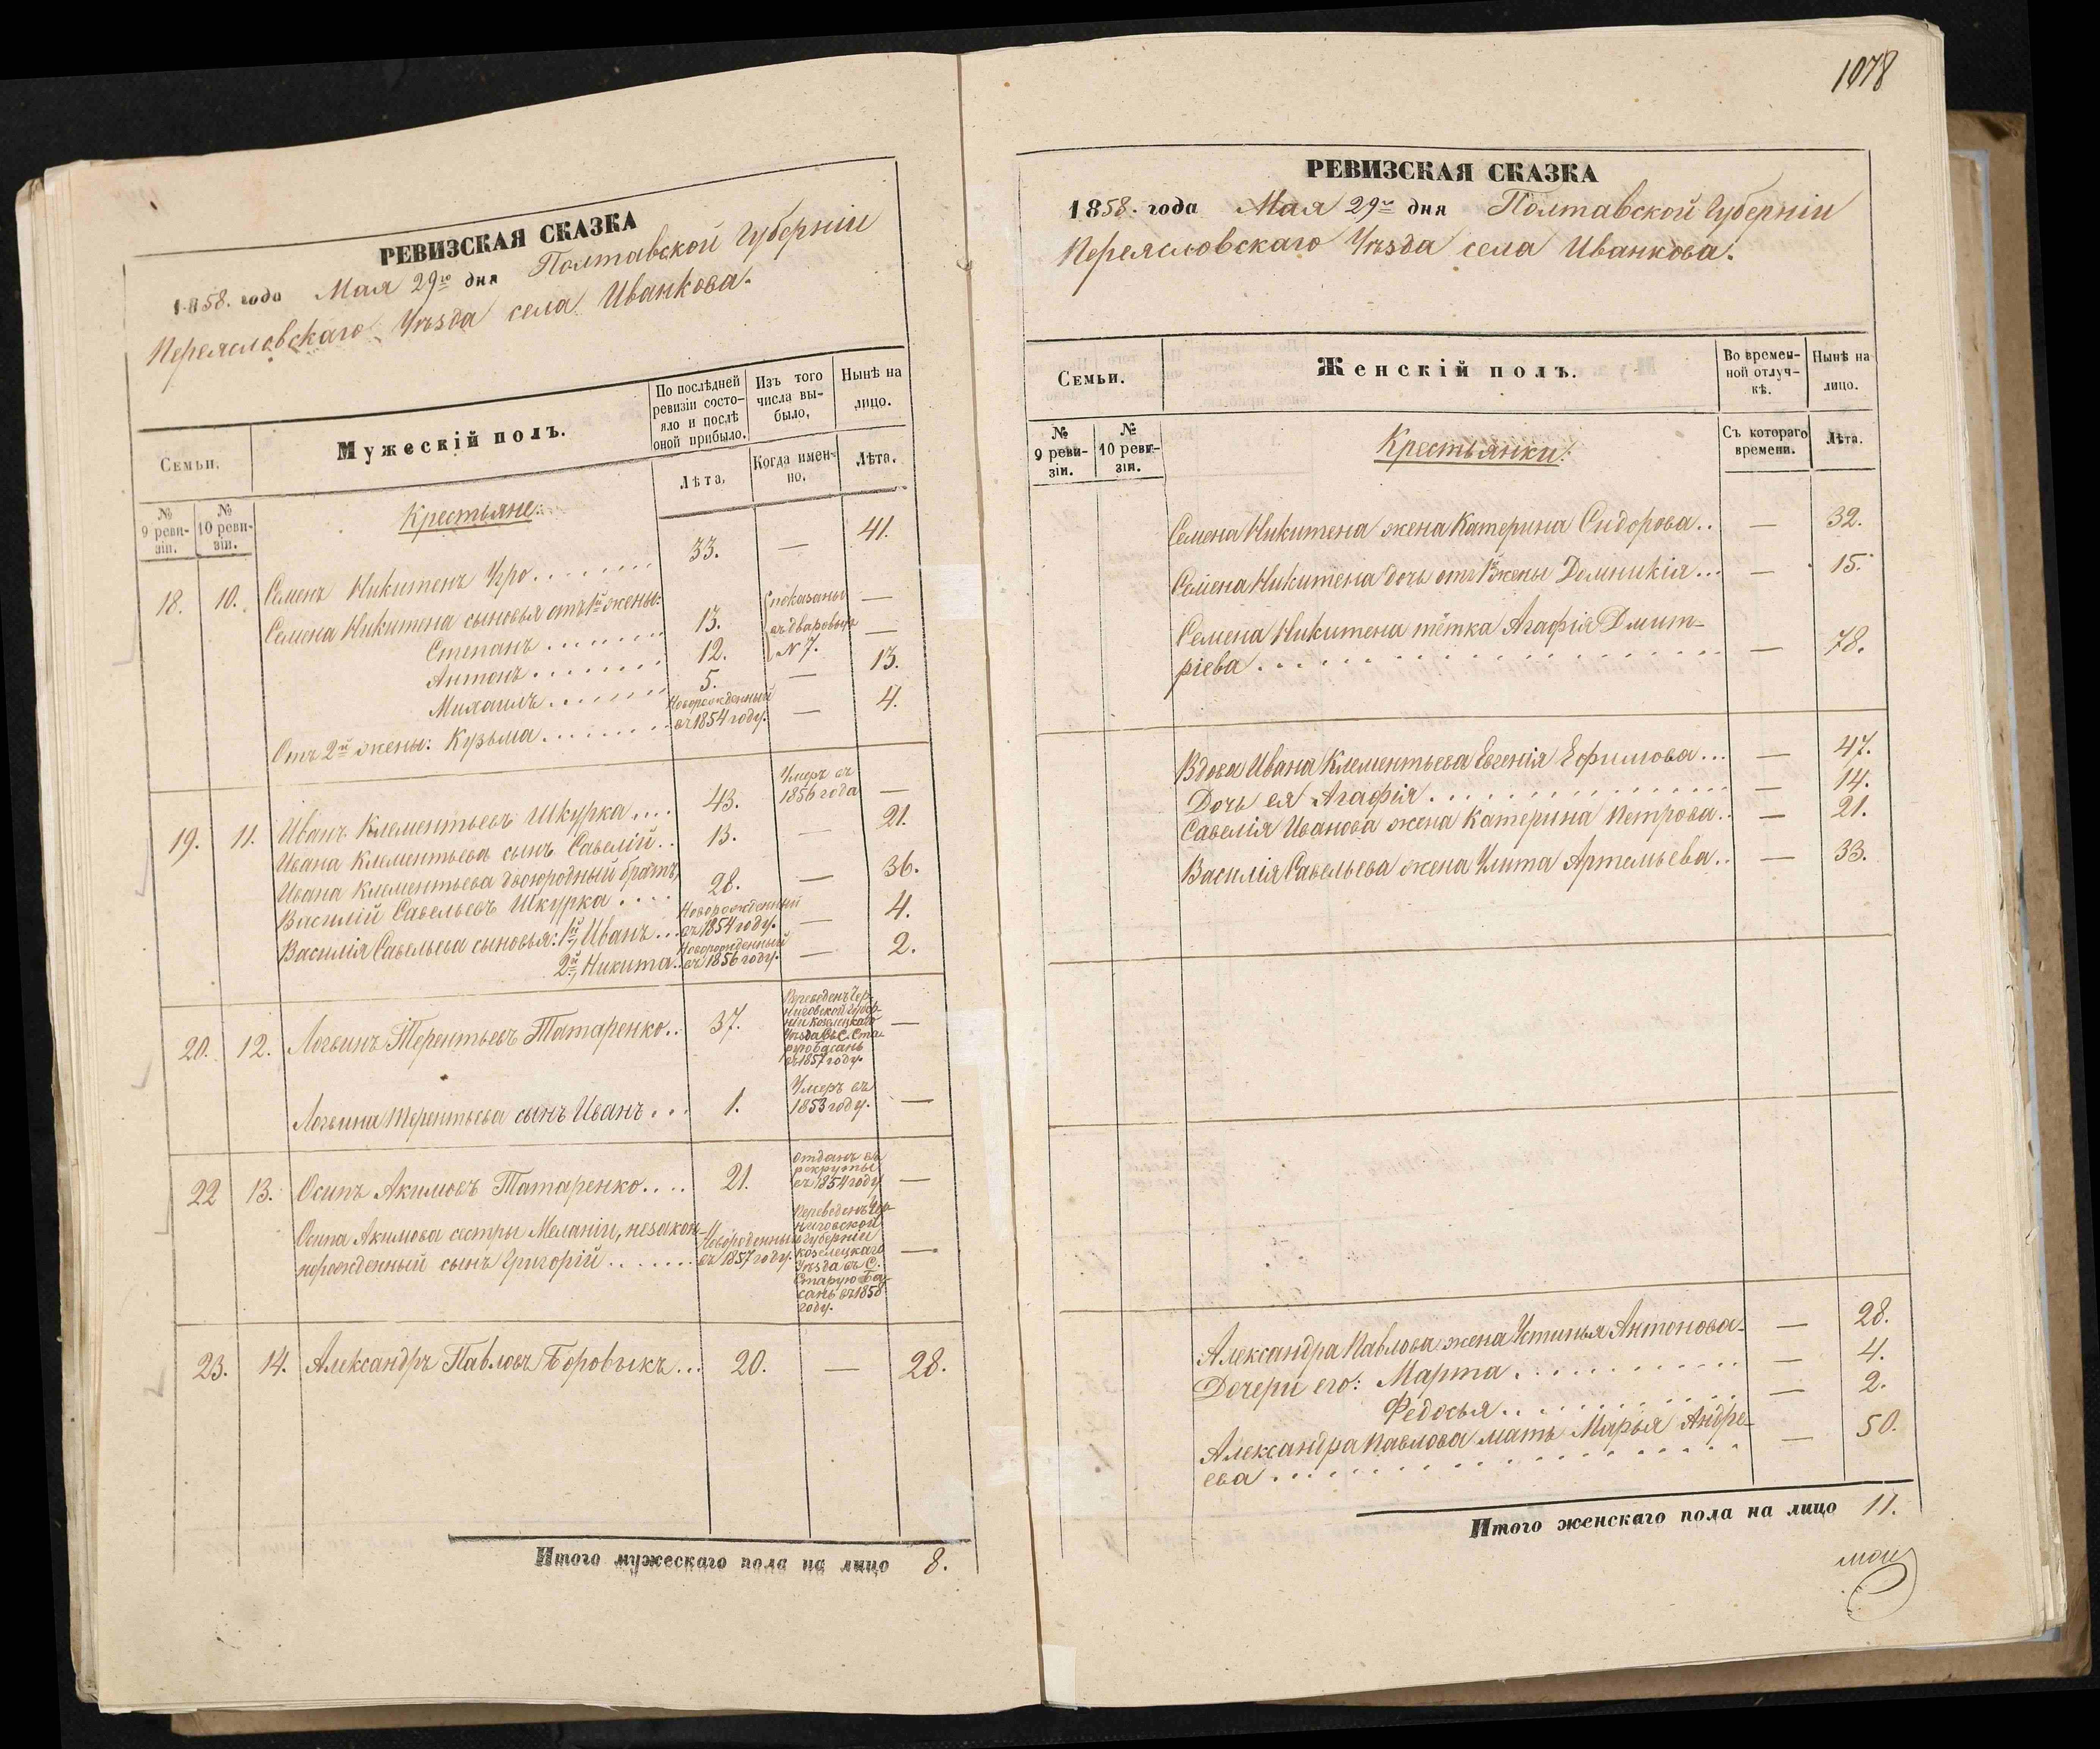 РЕВИЗСКАЯ СКАЗКА
1858. года Мая 29го дня Полтавской Губерніи
Переясловскаго Уѣзда села Иванкова.
Семьи.
Мужескій полъ.
По послѣдней ревизіи состо-
яло и послѣ оной прибыло.
Изъ того числа вы-
было,
Нынѣ на лицо.
№ 9 реви-
зіи.
№ 10 реви-
зіи.
Лѣта,
Когда имен-
но.
Лѣта.
Крестьяне:
18. 10. Семенъ Никитенъ 33. — 41.
Семена Никитена сыновья отъ 1й жены:
Степанъ 13. показаны —
Антонъ 12. въ дворовыхъ N 7. —
Михаилъ 5. — 13.
Отъ 2й жены: Кузьма Новорожденный въ 1854 году. — 4.
19. 11. Иванъ Клементьевъ Шкурка 43. Умеръ въ 1856 года —
Ивана Клементьева сынъ Савелій 13. — 21.
Ивана Клементьева двоюродный братъ,
Василій Савельевъ Шкурка 28. — 36.
Василія Савельева сыновья: 1й, Иванъ Новорожденный въ 1854 году. — 4.
2й, Никита Новорожденный въ 1856 году. — 2.
20. 12. Логвинъ Терентьевъ Татаренко 37. Переведенъ Чер-
ниговской Губер-
ніи Козелецкаго
Уѣзда въ С. Ста-
рую басань
въ 1857 году. —
Логвина Терентьева сынъ Иванъ 1. Умеръ въ 1853 году. —
22 13. Осипъ Акимовъ Татаренко 21. отданъ въ рекруты въ 1854 году —
Осипа Акимова сестры Меланіи, незакон-
норожденный сынъ Григорій Новорожденный въ 1857 году. Переведенъ Чер-
ниговской
губерніи
козелецкаго
Уѣзда въ С.
Старую Ба-
сань въ 1858
году. —
23. 14. Александръ Павловъ Боровыкъ 20. — 28.
Итого мужескаго пола на лицо 8.
1078
РЕВИЗСКАЯ СКАЗКА
1858. года Мая 29го дня Полтавской Губерніи
Переясловскаго Уѣзда села Иванкова.
Семьи.
Женскій полъ.
Во времен-
ной отлуч-
кѣ.
Нынѣ на лицо.
№ 9 реви-
зіи.
№ 10 реви-
зіи.
Съ котораго времени.
Лѣта.
Крестьянки:
Семена Никитена жена Катерина Сидорова — 32.
Семена Никитена дочь отъ 1й жены Домникія — 15.
Семена Никитена тётка Агафія Дмит-
ріева — 78.
Вдова Ивана Клементьева Евгенія Ефимова — 47.
Дочь ея Агафія — 14.
Савелія Иванова жена Катерина Петрова — 21.
Василія Савельева жена Улита Артемьева — 33.
Александра Павлова жена Устинья Антонова — 28.
Дочери его: Марта — 4.
Федосья — 2.
Александра Павлова мать Марья Андре-
ева — 50.
Итого женскаго пола на лицо 11.